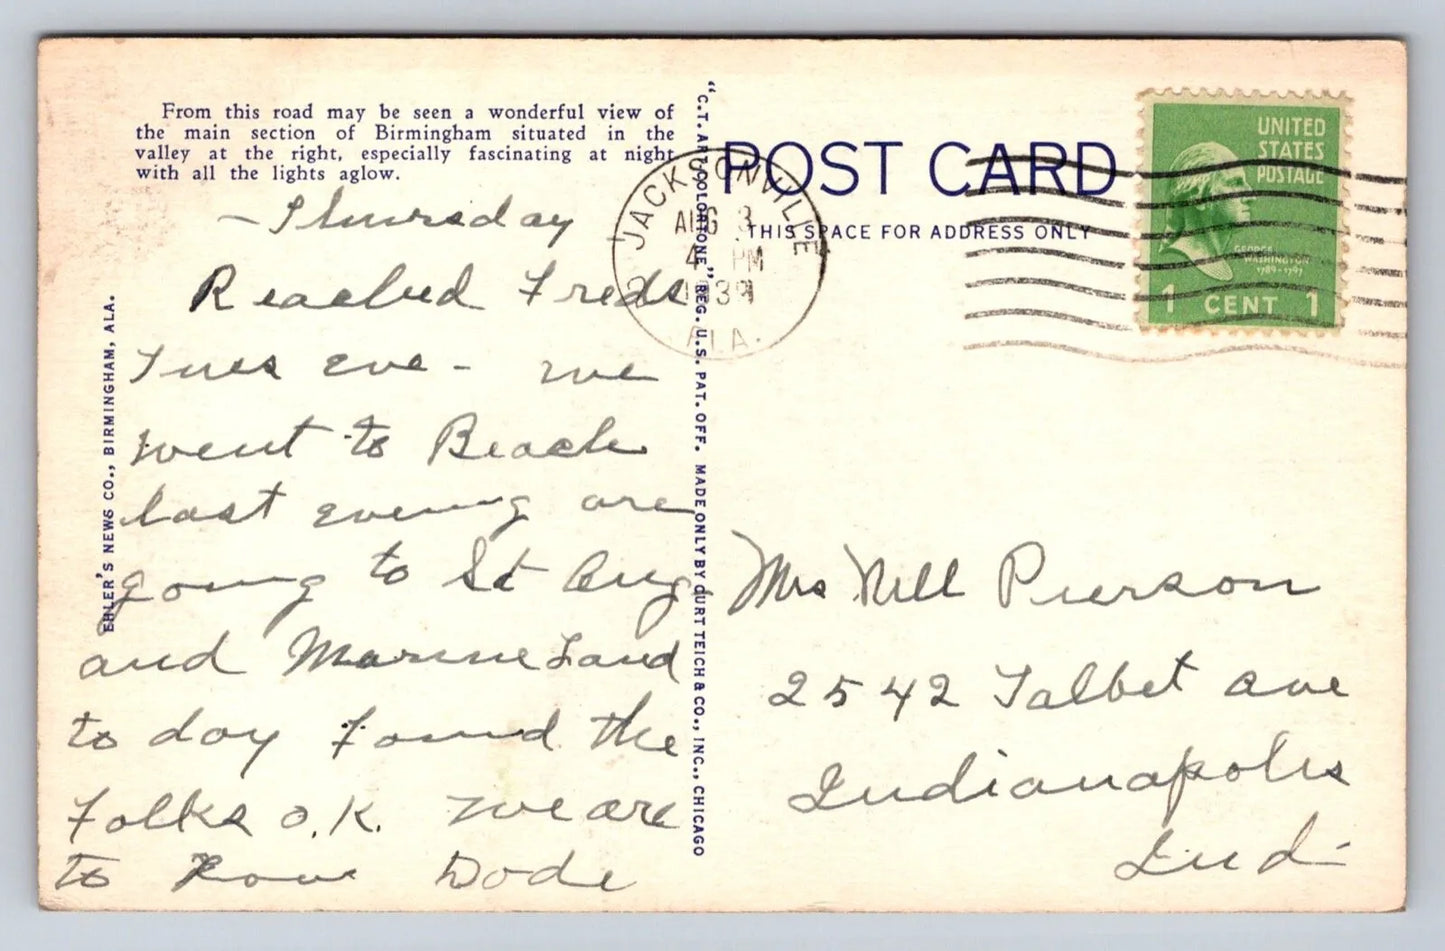 From this road may be seen a wonderful view of
the main section of Birmingham situated in the
valley at the right, especially fascinating at night
with all the lights aglow.
EHLER'S NEWS CO., BIRMINGHAM, ALA.
"C.T. ART-COLORTONE" REG. U.S. PAT. OFF. MADE ONLY BY CURT TEICH & CO., INC., CHICAGO
POST CARD
THIS SPACE FOR ADDRESS ONLY
JACKSONVILLE
AUG 3
4 PM
1939
UNITED
STATES
POSTAGE
GEORGE
WASHINGTON
1789-1797
1 CENT 1
- Thursday
Reached Freds
Tues eve - we
went to Beach
last evening are
going to St Aug
and Marine Land
to day found the
folks o.K. we are
to Dode
Mrs Nell Pierson
2542 Talbet ave
Indianapolis
Ind-